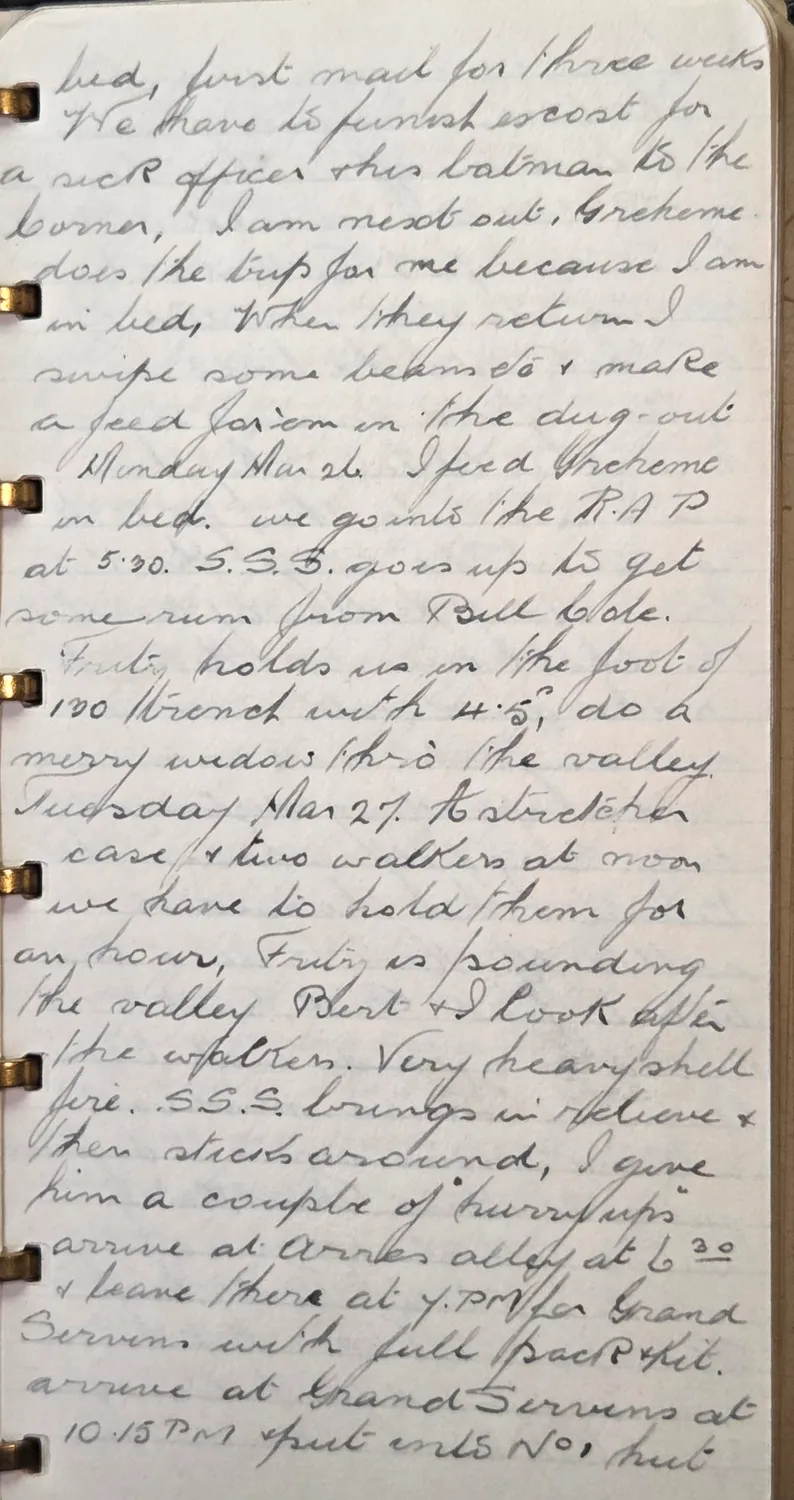 bed, first mail for three weeks
We have to furnish escort for
a sick officer & his batman to the
Corner, I am next out, Greheme
does the trip for me because I am
in bed, When they return I
swipe some beans &c & make
a feed for 'em in the dug-out
Monday Mar 26. I feed Greheme
in bed. we go into the R.A P
at 5.30. S.S.S. goes up to get
some rum from Bill Cole.
Fritz holds us in the foot of
130 trench with 4.5s, do a
merry widow thro the valley.
Tuesday Mar 27. A stretcher
case & two walkers at noon
we have to hold them for
an hour, Fritz is pounding
the valley Bert & I look after
the walkers. Very heavy shell
fire. S.S.S. brings in relieve &
then sticks around, I give
him a couple of "hurry ups"
arrive at Arras alley at 6 30
& leave there at 7.PM for Grand
Servins with full pack & Kit.
arrive at Grand Servins at
10.15 PM & put into No 1 hut